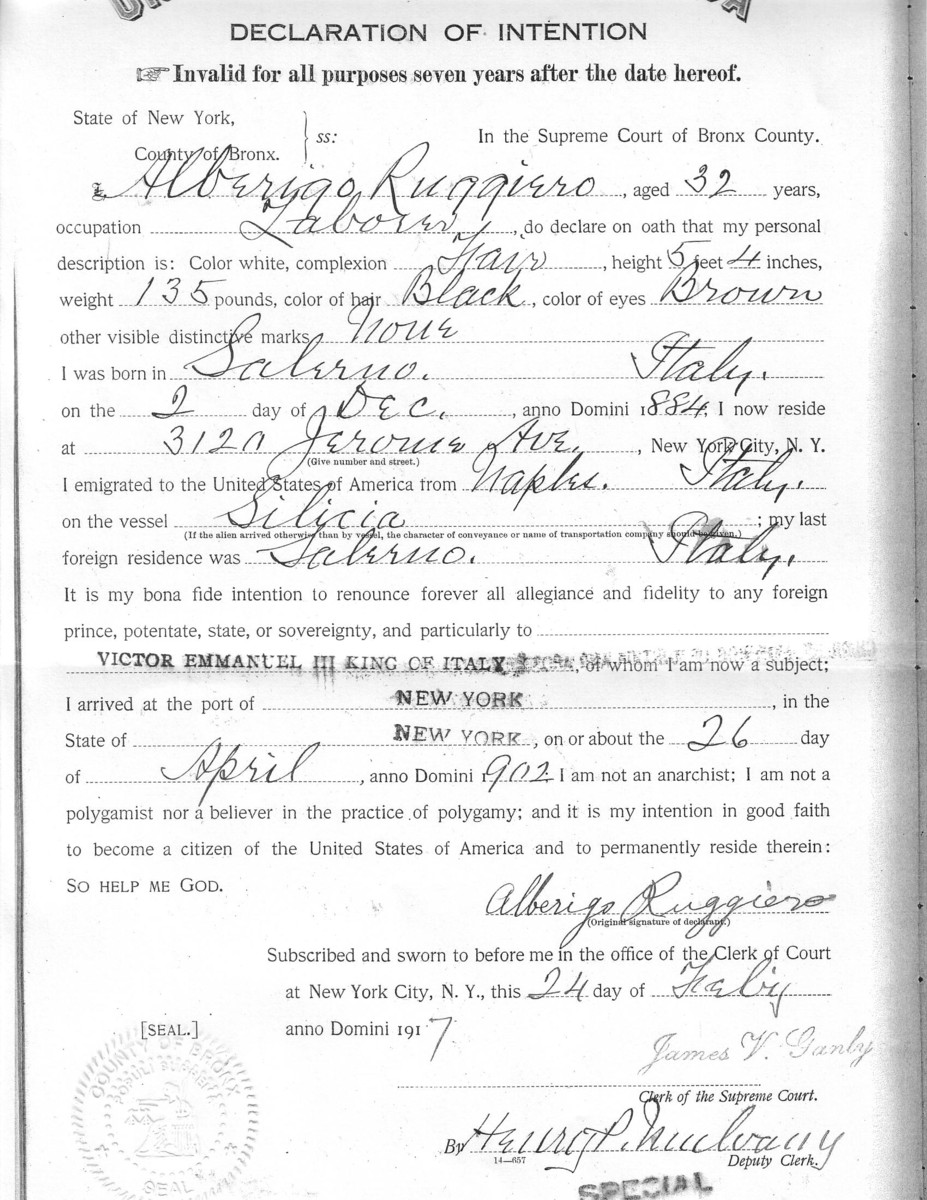 DECLARATION OF INTENTION
☞ Invalid for all purposes seven years after the date hereof.
State of New York,
County of Bronx. ss: In the Supreme Court of Bronx County.
I, Alberigo Ruggiero, aged 32 years,
occupation Laborer, do declare on oath that my personal
description is: Color white, complexion Fair, height 5 feet 4 inches,
weight 135 pounds, color of hair Black, color of eyes Brown
other visible distinctive marks None
I was born in Salerno. Italy.
on the 2 day of Dec., anno Domini 1884; I now reside
at 3120 Jerome Ave., New York City, N. Y.
(Give number and street.)
I emigrated to the United States of America from Naples. Italy.
on the vessel Silicia; my last
(If the alien arrived otherwise than by vessel, the character of conveyance or name of transportation company should be given.)
foreign residence was Salerno. Italy.
It is my bona fide intention to renounce forever all allegiance and fidelity to any foreign
prince, potentate, state, or sovereignty, and particularly to
VICTOR EMMANUEL III KING OF ITALY, of whom I am now a subject;
I arrived at the port of NEW YORK, in the
State of NEW YORK, on or about the 26 day
of April, anno Domini 1902 I am not an anarchist; I am not a
polygamist nor a believer in the practice of polygamy; and it is my intention in good faith
to become a citizen of the United States of America and to permanently reside therein:
SO HELP ME GOD.
Alberigo Ruggiero
(Original signature of declarant.)
Subscribed and sworn to before me in the office of the Clerk of Court
at New York City, N. Y., this 24 day of Feby
[SEAL.] anno Domini 1917
COUNTY OF BRONX
SEAL
James V. Ganly
Clerk of the Supreme Court.
By Henry P. Mulvany
14—657 Deputy Clerk.
SPECIAL